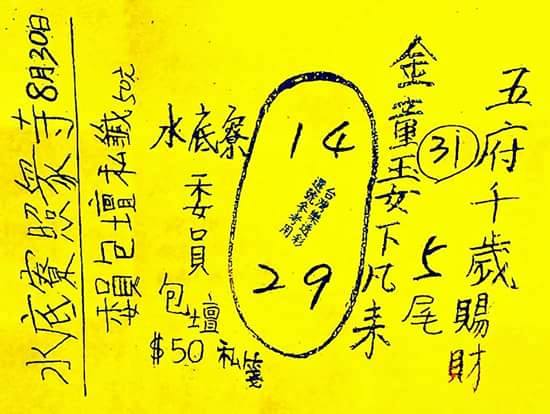 五府千歲賜財
5尾
31
金童玉女下凡來
14
台灣樂透彩
選號參考用
29
水底寮
委員
包壇
$50私簽
委員包壇私籤50元
水底寮照眾寺8月30日